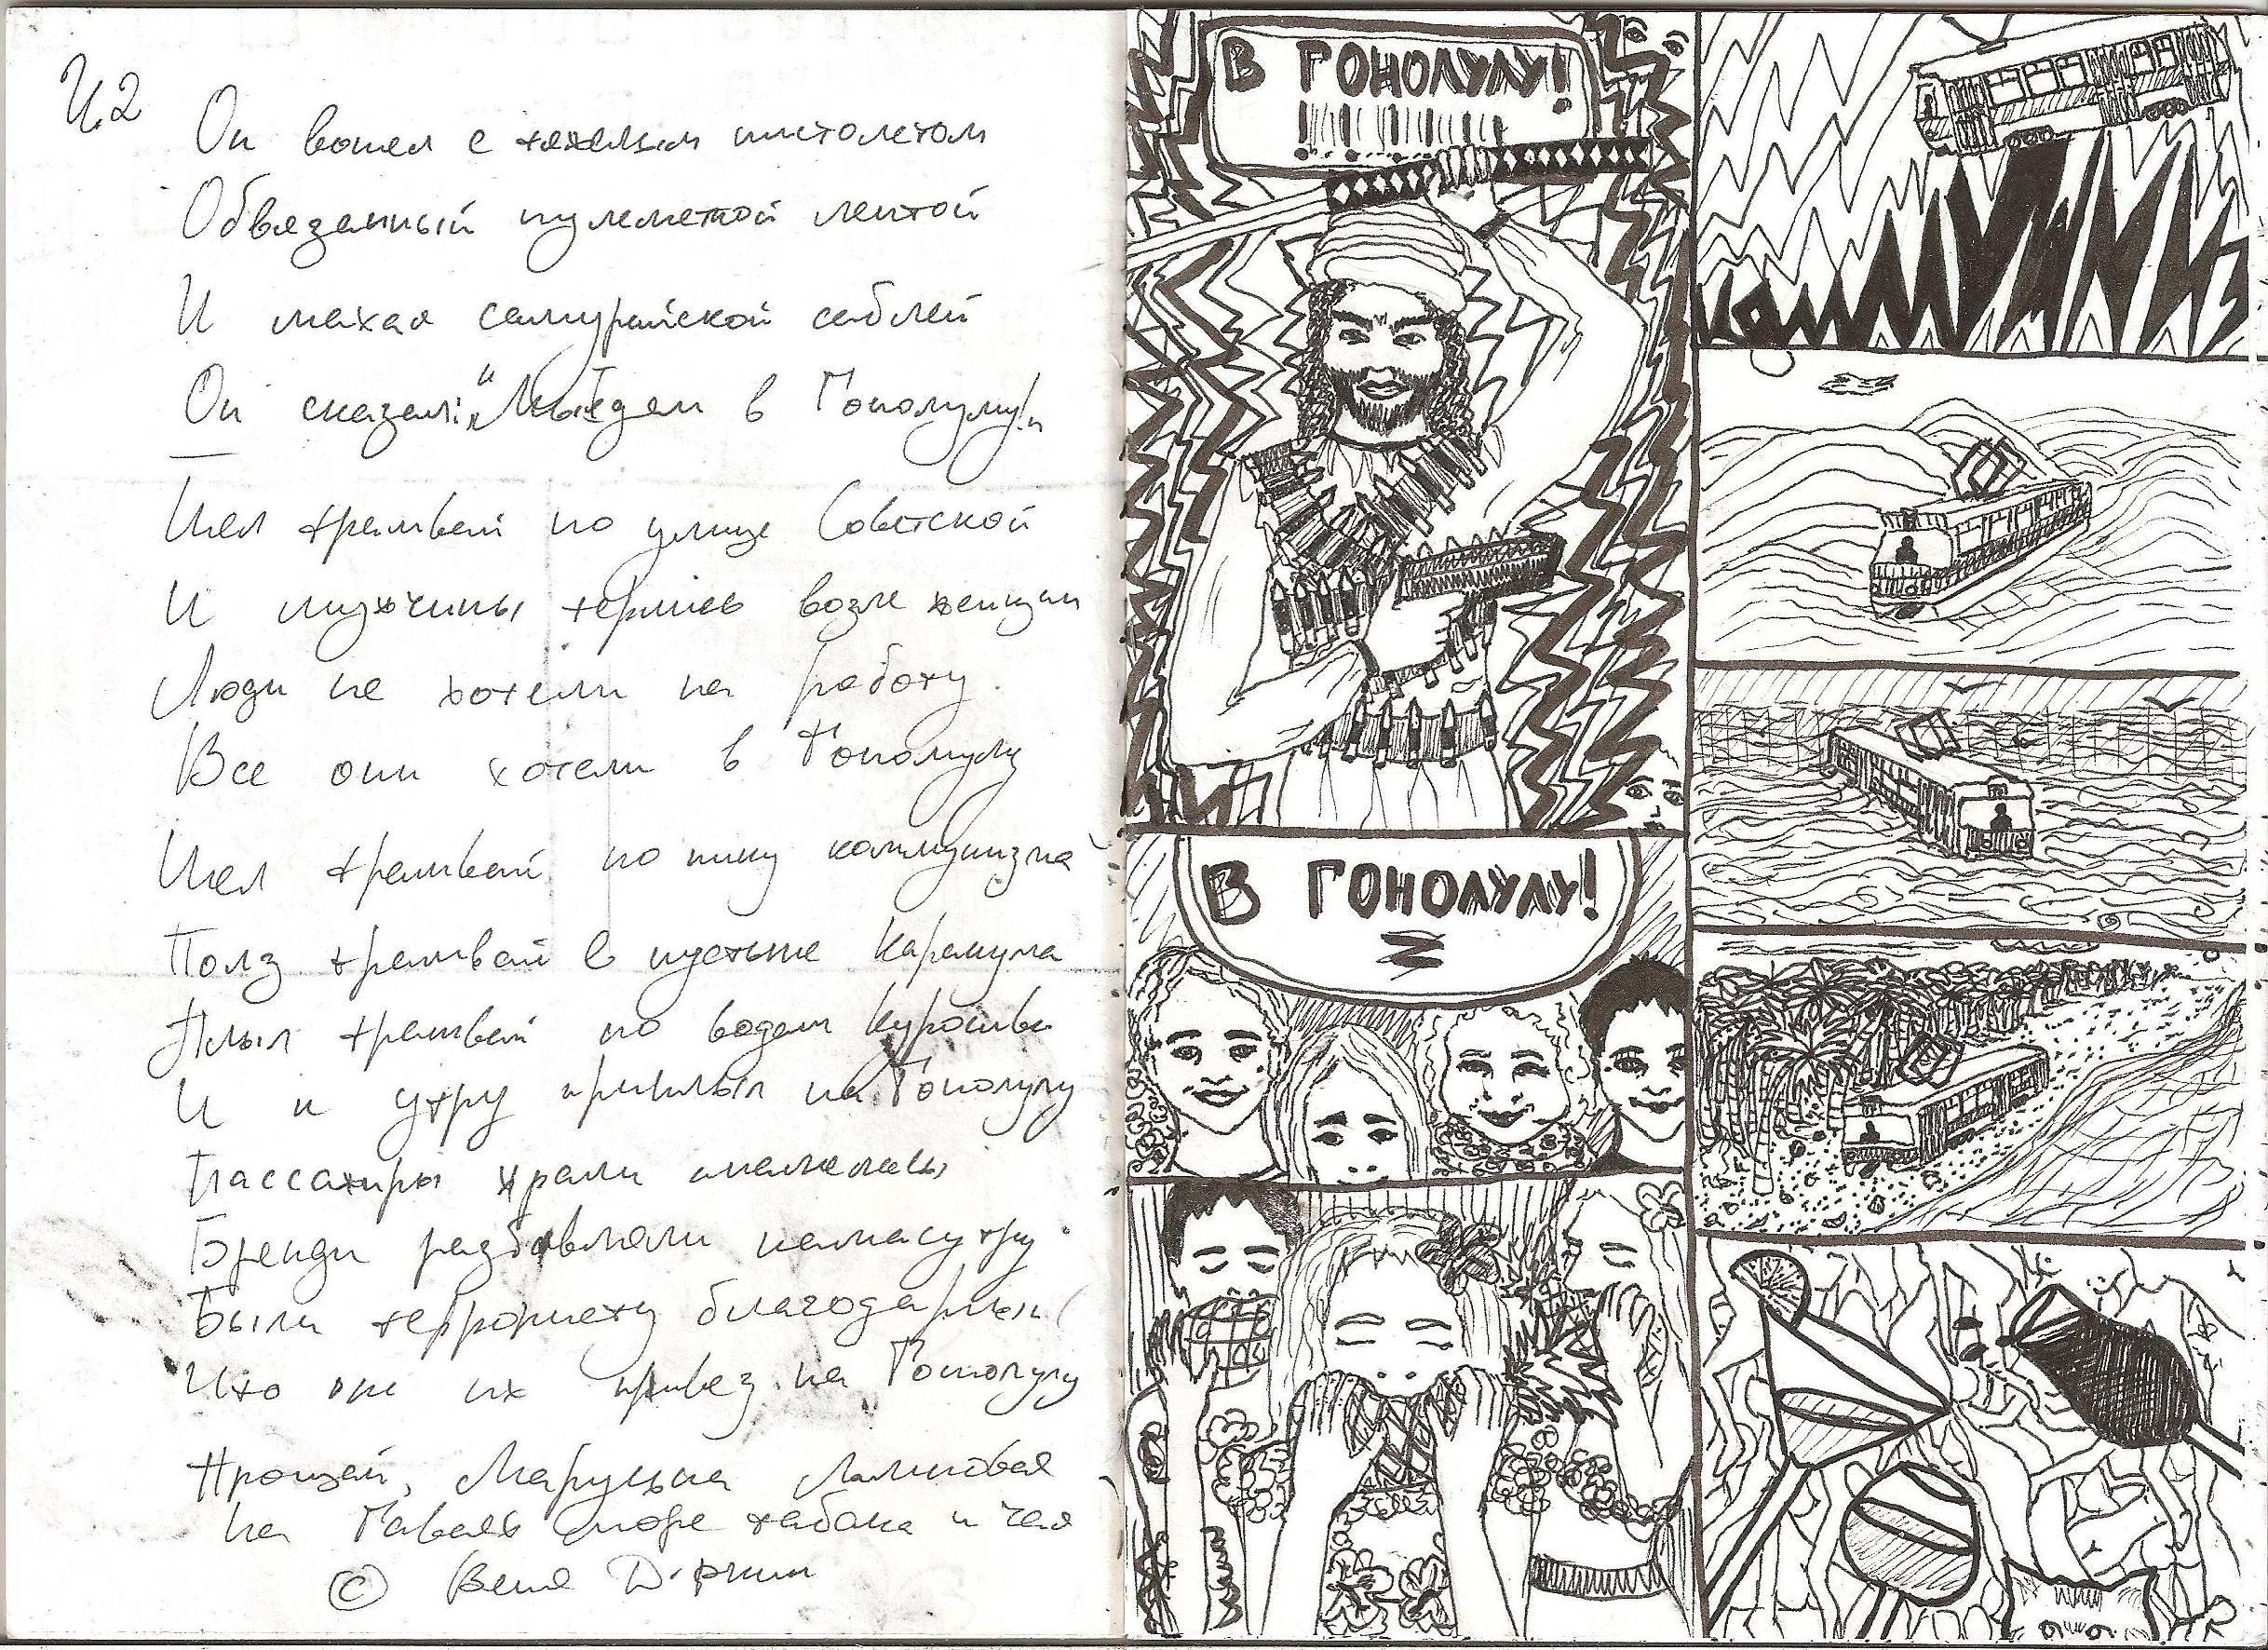 Ч.2
Он вошел с тяжелым пистолетом
Обвязанный пулеметной лентой
И махая самурайской саблей
Он сказал: „Мы едем в Гонолулу!"
Шел трамвай по улице Советской
И мужчины терлись возле женщин
Люди не хотели на работу.
Все они хотели в Гонолулу
Шел трамвай по пику коммунизма
Полз трамвай в пустыне Каракума
Плыл трамвай по водам Куросиво
И к утру приплыл на Гонолулу
Пассажиры жрали
Бренди разбавляли камасутру
Были террористу благодарны
Что он их привез на Гонолулу
Прощай, Маруська Ламповая
На Гаваях море табака и чая
© Веня Д'ркин
В ГОНОЛУЛУ!
!!!!!!!!!!
В ГОНОЛУЛУ!